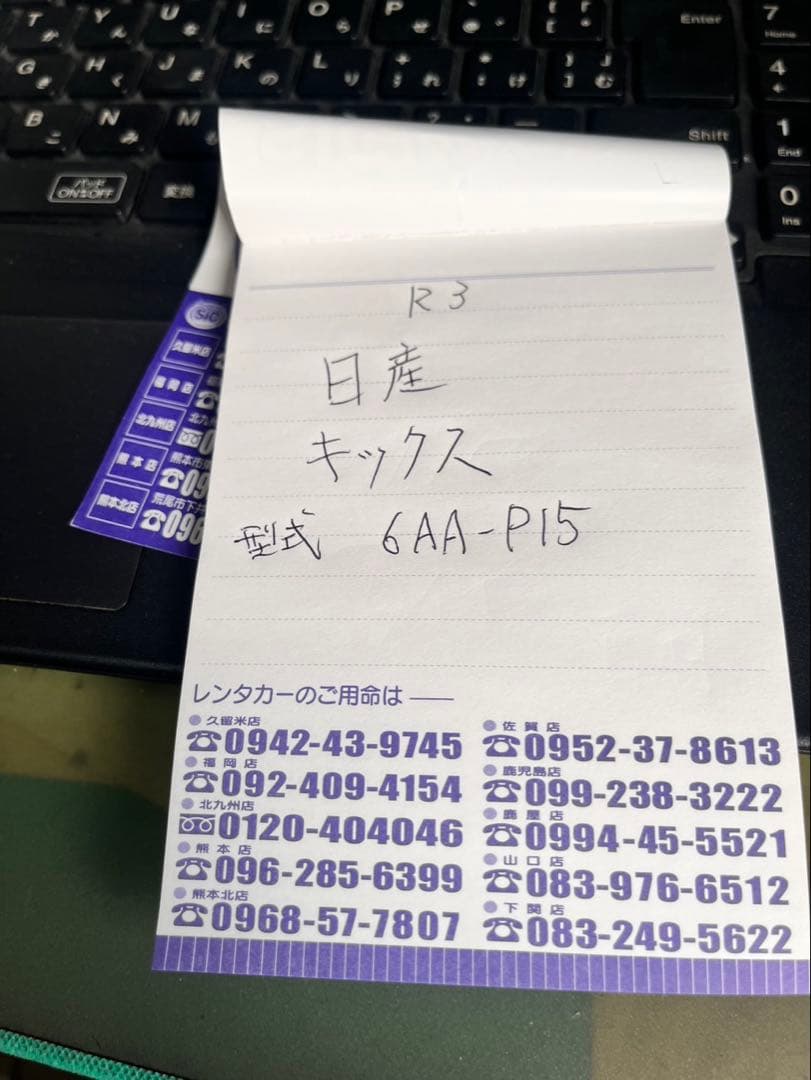 T か
Y ん
U な
I に
O ら
P せ
Enter
7
Home
G き
H く
J ま
K の
L り
4
B こ
N み
M も
Shift
1
End
パッド
ON⇔OFF
変換
0
Ins
R3
日産
キックス
型式 6AA-P15
SiC
久留米店
福岡店
北九州店
熊本店
熊本北店
レンタカーのご用命は
久留米店
☎0942-43-9745
福岡店
☎092-409-4154
北九州店
0120-404046
熊本店
☎096-285-6399
熊本北店
☎0968-57-7807
佐賀店
☎0952-37-8613
鹿児島店
☎099-238-3222
鹿屋店
☎0994-45-5521
山口店
☎083-976-6512
下関店
☎083-249-5622